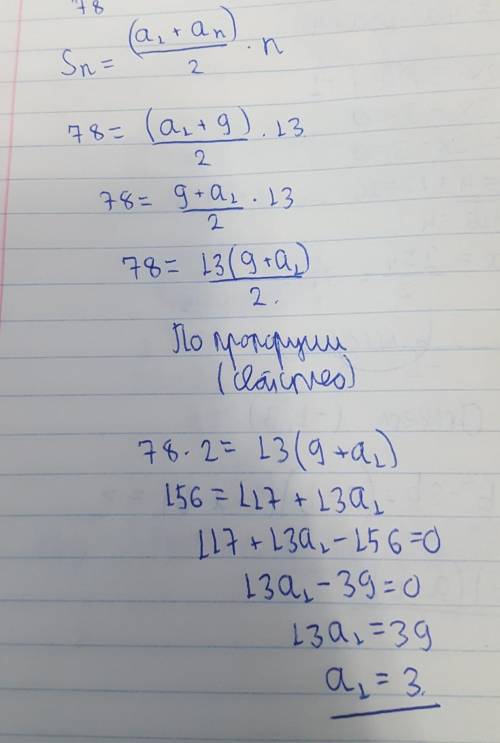 78
Sn = (a₁ + an) / 2 · n
78 = (a₁ + 9) / 2 · 13
78 = 9 + a₁ / 2 · 13
78 = 13(9 + a₁) / 2.
По пропорции
(свойство)
78 · 2 = 13(9 + a₁)
156 = 117 + 13a₁
117 + 13a₁ - 156 = 0
13a₁ - 39 = 0
13a₁ = 39
a₁ = 3.